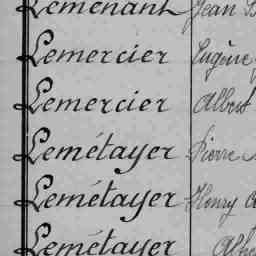 Lemenant Jean
Lemercier Eugène
Lemercier Albert
Lemétayer Pierre
Lemétayer Henry
Lemétayer